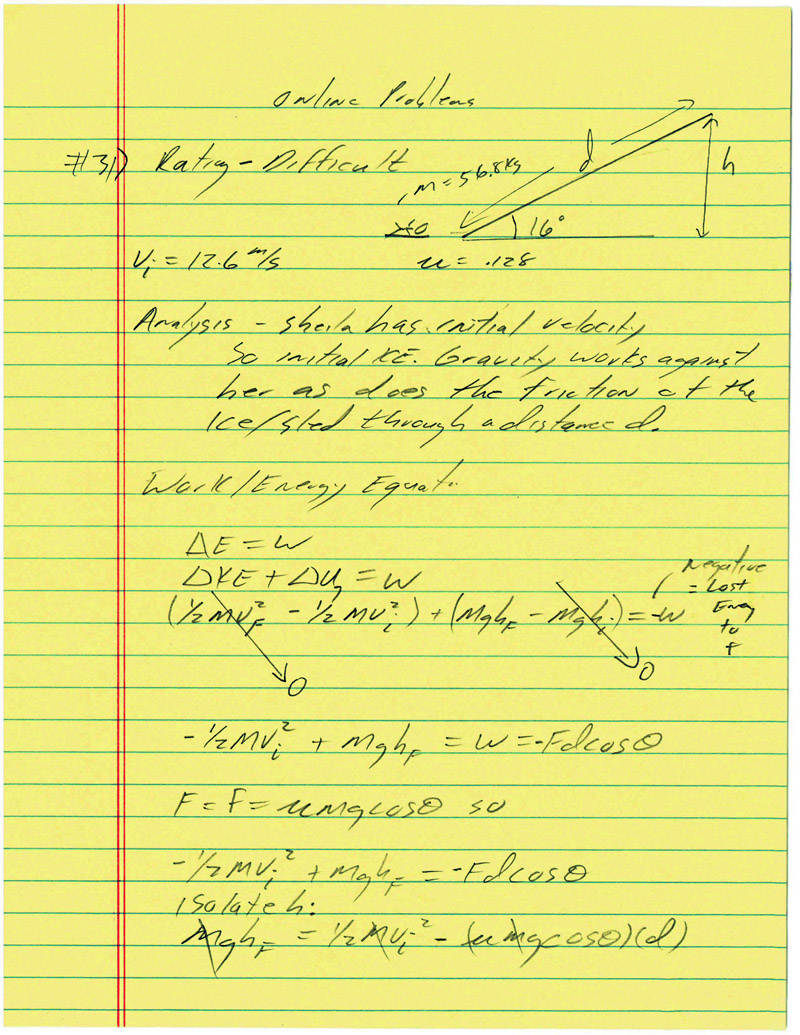 Online Problems
#31) Rating - Difficult
m = 56.8kg
d
h
16°
Vi = 12.6 m/s
u = .128
Analysis - sheila has initial velocity
so initial KE. Gravity works against
her as does the friction of the
Ice/sled through a distance d.
Work/Energy Equat.
ΔE = W
ΔKE + ΔUg = W
(½MVF² - ½MVi²) + (MghF - Mghi) = -W
Negative
= Lost
Energy
to
f
0
0
-½MVi² + MghF = W = -Fdcosθ
F = f = umgcosθ so
-½MVi² + MghF = -Fdcosθ
isolate h:
MghF = ½MVi² - (umgcosθ)(d)